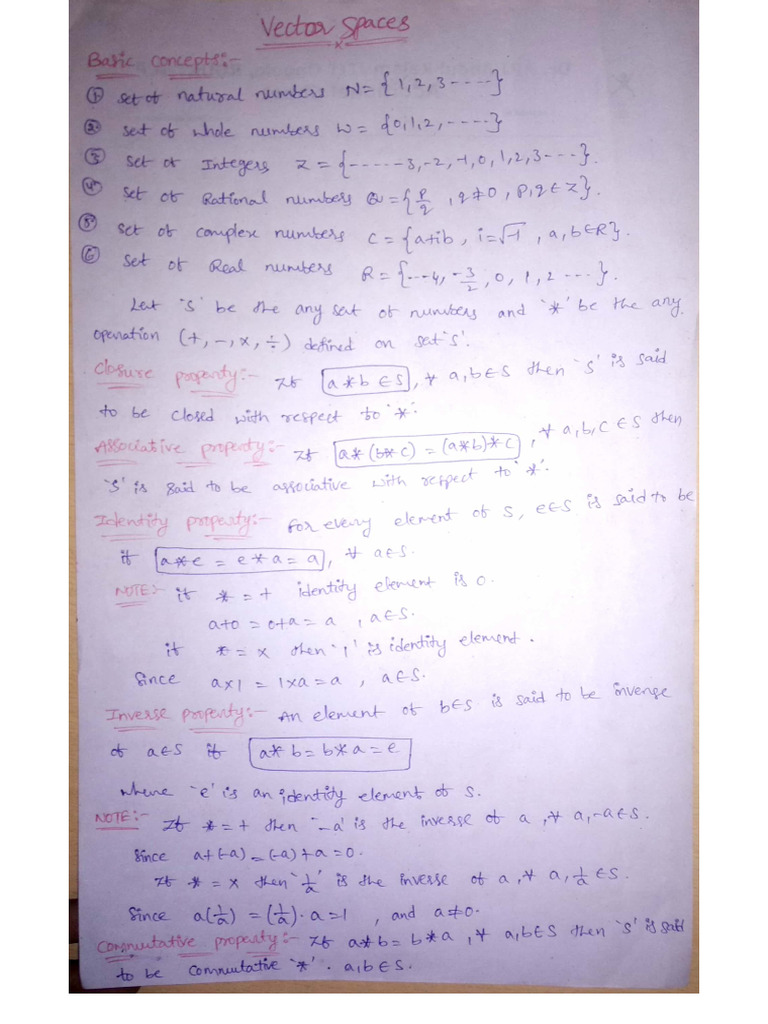 Vector Spaces
Basic concepts:-
① set of natural numbers N = {1, 2, 3 - - - -}
② set of whole numbers W = {0, 1, 2, - - - - -}
③ set of Integers Z = {- - - - - -3, -2, -1, 0, 1, 2, 3 - - - -}.
④ set of Rational numbers Q = {p/q , q ≠ 0 , p, q ∈ Z}.
⑤ set of complex numbers C = {a+ib, i=√-1 , a, b ∈ R}.
⑥ set of Real numbers R = {- - - -4, -3/2, 0, 1, 2 - - - -}.
Let 'S' be the any set of numbers and '*' be the any
operation (+, -, ×, ÷) defined on set 'S'.
Closure property:- If a * b ∈ S , ∀ a, b ∈ S then 'S' is said
to be closed with respect to '*'.
Associative property:- If a * (b * c) = (a * b) * c , ∀ a, b, c ∈ S then
'S' is said to be associative with respect to '*'.
Identity property:- for every element of S, e ∈ S is said to be
if a * e = e * a = a , ∀ a ∈ S.
NOTE:- if * = + identity element is 0.
a+0 = 0+a = a , a ∈ S.
if * = × then '1' is identity element.
Since a×1 = 1×a = a , a ∈ S.
Inverse property:- An element of b ∈ S is said to be inverse
of a ∈ S if a * b = b * a = e
where 'e' is an identity element of S.
NOTE:- If * = + then '-a' is the inverse of a , ∀ a, -a ∈ S.
Since a+(-a) = (-a)+a = 0.
If * = × then '1/a' is the inverse of a, ∀ a, 1/a ∈ S.
Since a(1/a) = (1/a)·a = 1 , and a ≠ 0.
Commutative property:- If a * b = b * a , ∀ a, b ∈ S then 'S' is said
to be commutative '*' . a, b ∈ S.